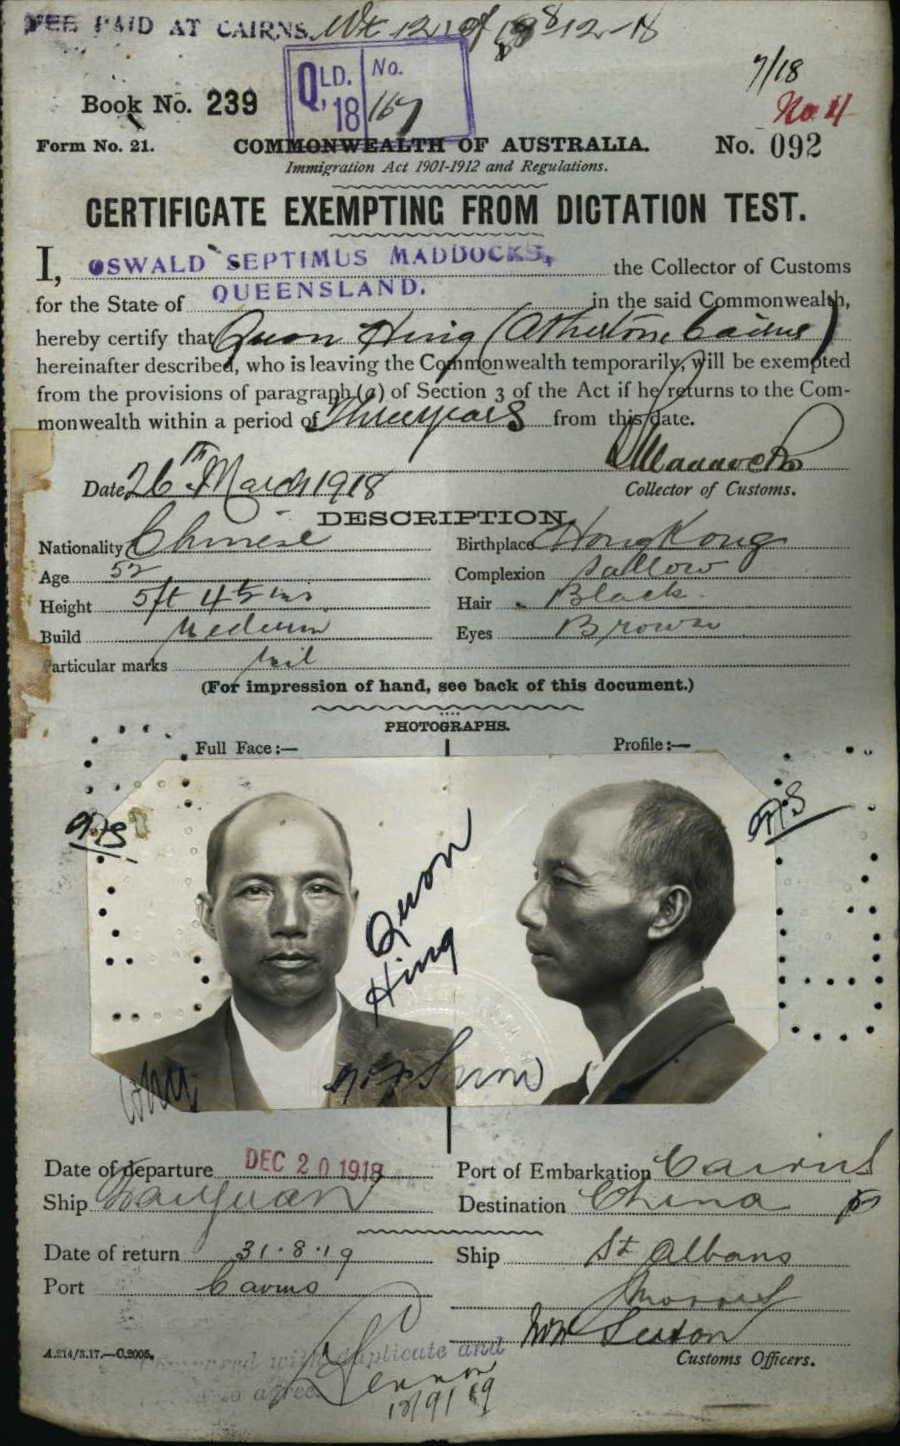 FEE PAID AT CAIRNS.
8-12-18
QLD. No.
'18 167
7/18
No 4
Book No. 239
Form No. 21. COMMONWEALTH OF AUSTRALIA. No. 092
Immigration Act 1901-1912 and Regulations.
CERTIFICATE EXEMPTING FROM DICTATION TEST.
I, OSWALD SEPTIMUS MADDOCKS, the Collector of Customs
for the State of QUEENSLAND. in the said Commonwealth,
hereby certify that Quon Hing (Atherton, Cairns)
hereinafter described, who is leaving the Commonwealth temporarily, will be exempted
from the provisions of paragraph (a) of Section 3 of the Act if he returns to the Com-
monwealth within a period of Three years from this date.
Date 26th March 1918 Maddocks
Collector of Customs.
DESCRIPTION.
Nationality Chinese Birthplace Hong Kong
Age 52 Complexion Sallow
Height 5ft 4½ ins. Hair Black
Build Medium Eyes Brown
Particular marks nil
(For impression of hand, see back of this document.)
PHOTOGRAPHS.
Full Face:— Profile:—
Quon
Hing
Date of departure DEC 20 1918 Port of Embarkation Cairns
Ship Taiyuan Destination China
Date of return 31.8.19 Ship St Albans
Port Cairns
Customs Officers.
A.214/3.17.—C.2005.
duplicate and
Lennon
18/9/19